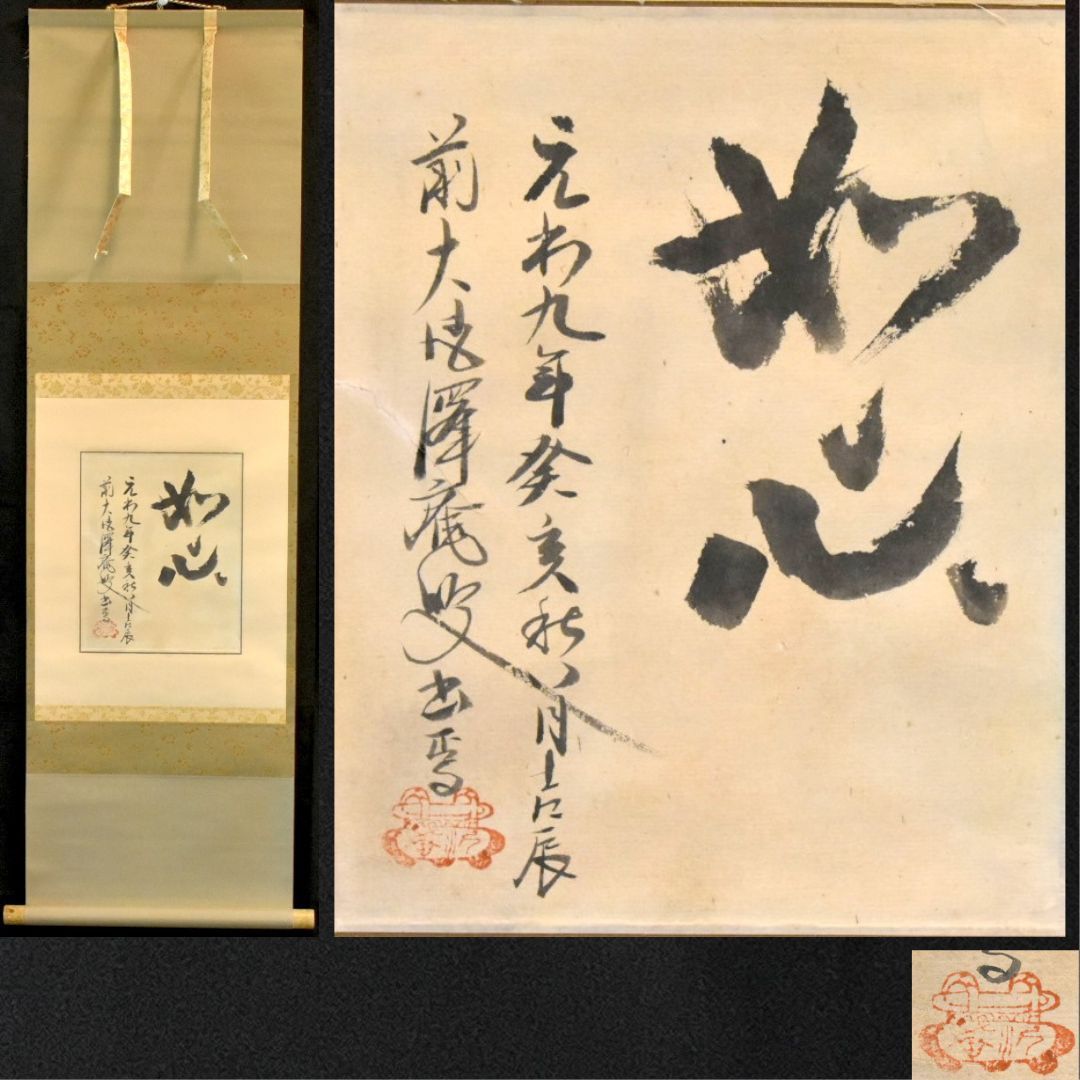 如心
元和九年癸亥秋八月吉辰
前大徳澤庵叟書焉